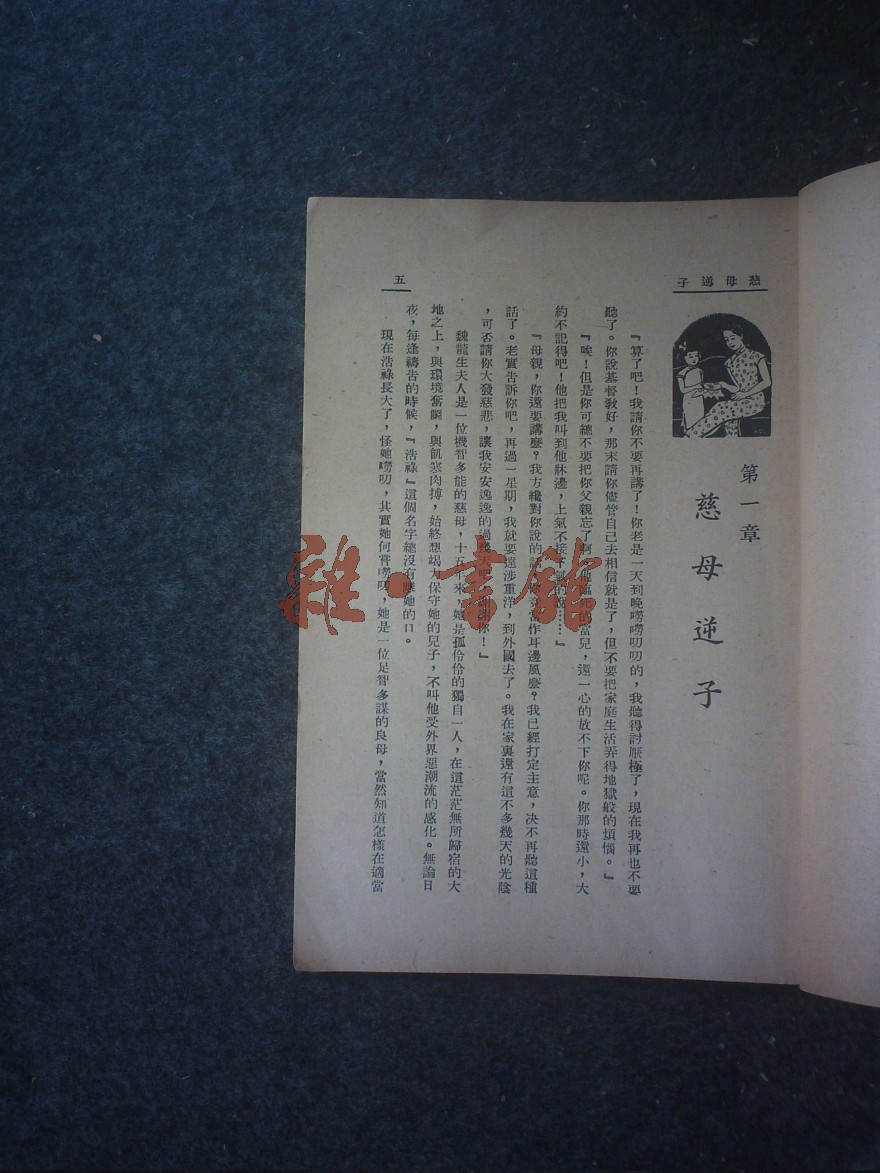 慈母逆子
五
第一章
慈母逆子
『算了吧！我請你不要再講了！你老是一天到晚嘮嘮叨叨的，我聽得討厭極了，現在我再也不要
聽了。你說基督教好，那末請你儘管自己去相信就是了，但不要把家庭生活弄得地獄般的煩惱。』
『唉！但是你可總不要把你父親忘了啊。他臨死的當兒，還一心的放不下你呢。你那時還小，大
約不記得吧！他把我叫到他牀邊，上氣不接下氣的說……』
『母親，你還要講麼？我方纔對你說的話，你竟當作耳邊風麼？我已經打定主意，决不再聽這種
話了。老實告訴你吧，再過一星期，我就要遠涉重洋，到外國去了。我在家裏還有這不多幾天的光陰
，可否請你大發慈悲，讓我安安逸逸的過幾天吧，謝謝你！』
魏龍生夫人是一位機智多能的慈母，十五年來，她是孤伶伶的獨自一人，在這茫茫無所歸宿的大
地之上，與環境奮鬭，與飢寒肉搏，始終想竭力保守她的兒子，不叫他受外界惡潮流的感化。無論日
夜，每逢禱告的時候，『浩祿』這個名字總沒有離她的口。
現在浩祿長大了，怪她嘮叨，其實她何嘗嘮叨，她是一位足智多謀的良母，當然知道怎樣在適當
雜·書館